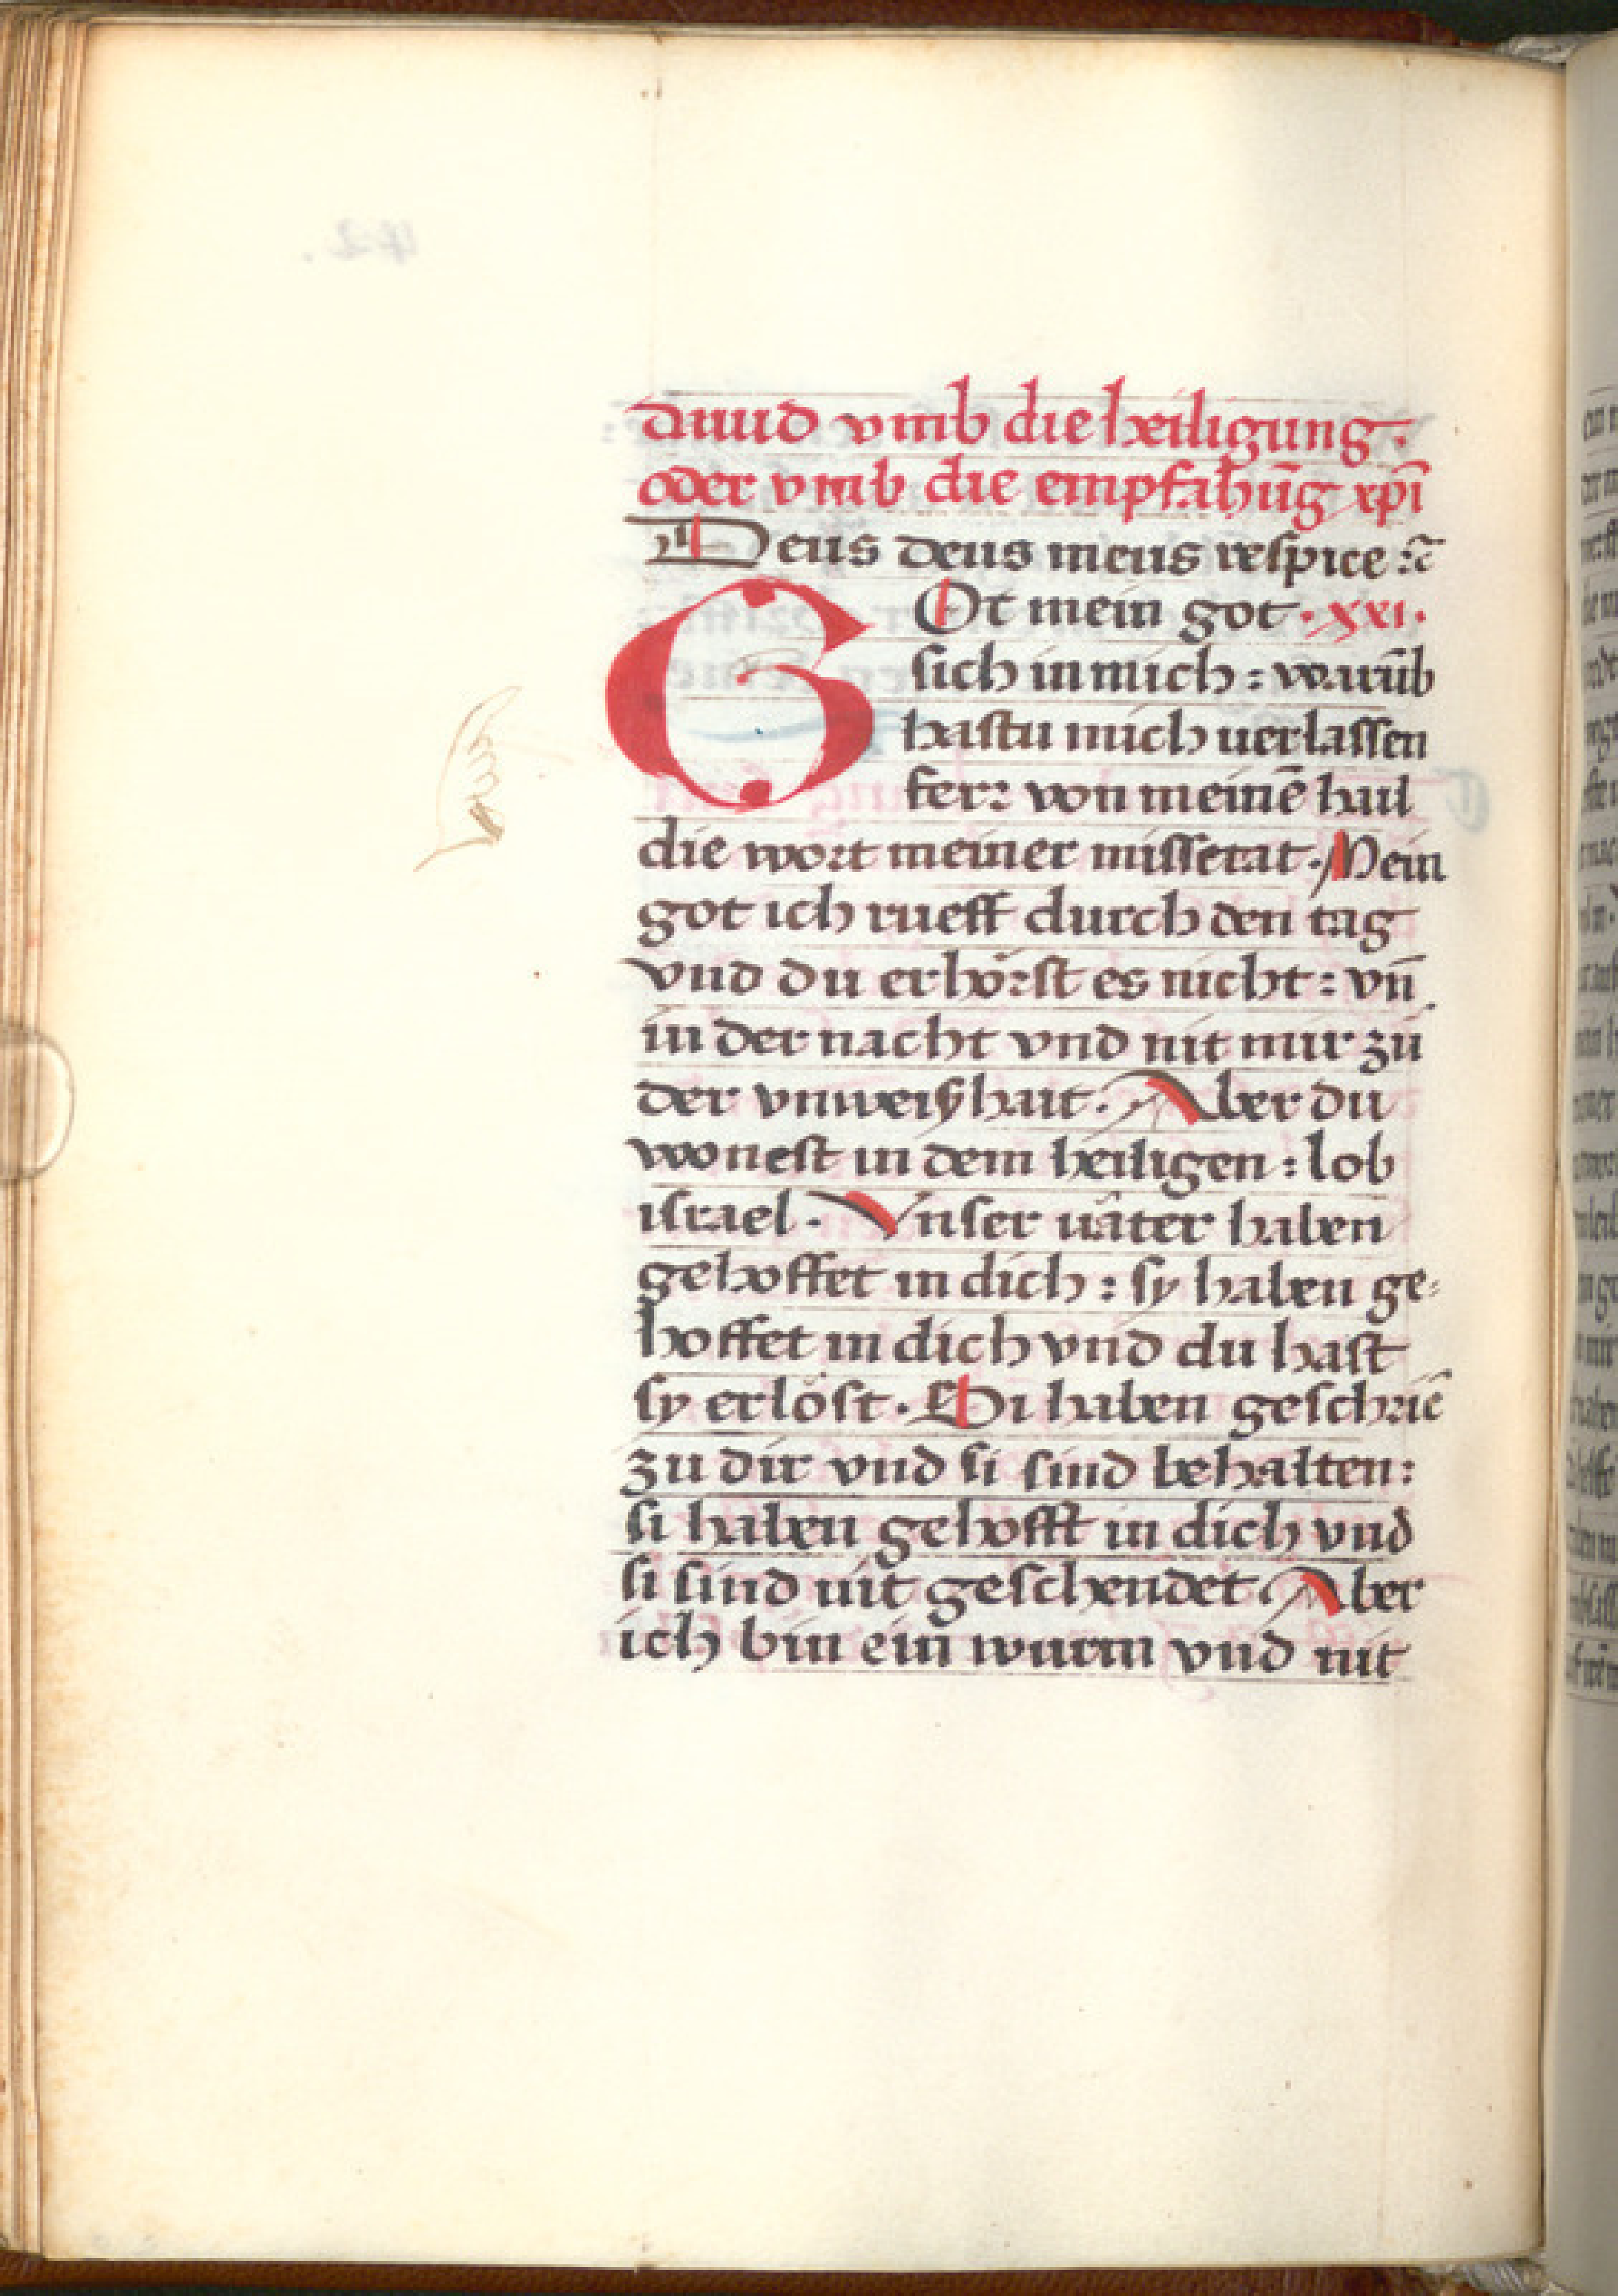 dauid vmb die heiligung.
oder vmb die empfahūg xp̄i
Deus deus meus respice :c̄
GOt mein got · xxi ·
sich in mich : warūb
hastu mich uerlassen
ferr von meinē hail
die wort meiner missetat. Mein
got ich rueff durch den tag
vnd du erhörst es nicht : vn̄
in der nacht vnd nit mir zů
der vnweishait. Aber du
wonest in dem heiligen : lob
israel. Vnser uåter haben
gehoffet in dich : sy haben ge-
hoffet in dich vnd du hast
sy erlöst. Si haben geschriē
zu dir vnd si sind behalten:
si haben gehofft in dich vnd
si sind nit geschendet Aber
ich bin ein wurm vnd nit